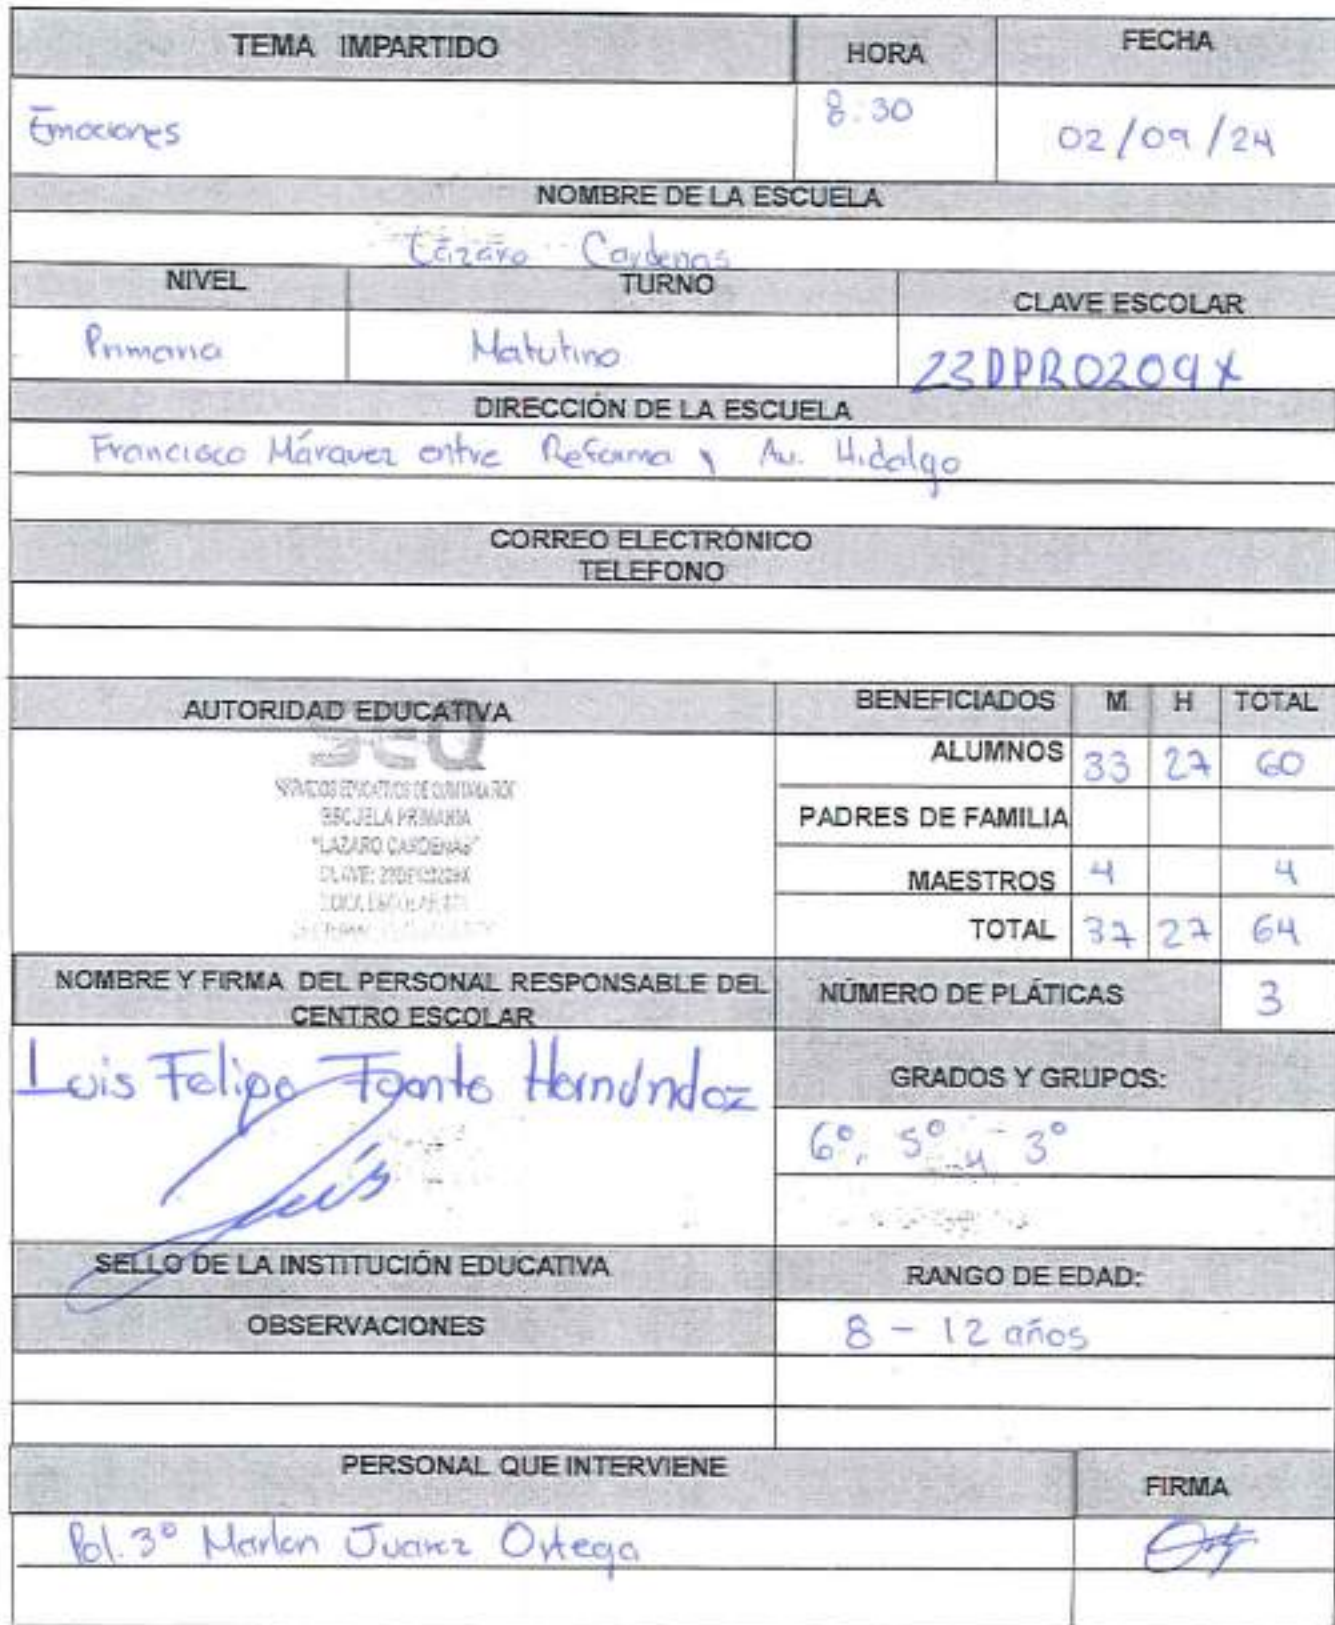 TEMA IMPARTIDO HORA FECHA
Emociones 8:30 02/09/24
NOMBRE DE LA ESCUELA
Lázaro Cardenas
NIVEL TURNO CLAVE ESCOLAR
Primaria Matutino 23DPR0209X
DIRECCIÓN DE LA ESCUELA
Francisco Márquez entre Reforma y Av. Hidalgo
CORREO ELECTRÓNICO
TELEFONO
AUTORIDAD EDUCATIVA BENEFICIADOS M H TOTAL
SEQ
SERVICIOS EDUCATIVOS DE QUINTANA ROO
ESCUELA PRIMARIA
"LAZARO CARDENAS"
CLAVE:
ALUMNOS 33 27 60
PADRES DE FAMILIA
MAESTROS 4 4
TOTAL 37 27 64
NOMBRE Y FIRMA DEL PERSONAL RESPONSABLE DEL
CENTRO ESCOLAR
NÚMERO DE PLÁTICAS 3
Luis Felipe Hernández
Luis
GRADOS Y GRUPOS:
6°, 5° y 3°
SELLO DE LA INSTITUCIÓN EDUCATIVA RANGO DE EDAD:
OBSERVACIONES 8 - 12 años
PERSONAL QUE INTERVIENE FIRMA
Pol. 3° Marlon Juarez Ortega